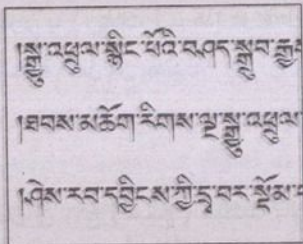 །སྒྱུ་འཕྲུལ་སྙིང་པོའི་བཤད་སྒྲུབ་རྒྱ
།ཐབས་མཆོག་རིགས་ལྔ་སྒྱུ་འཕྲུལ་
།ཤེས་རབ་དབྱིངས་ཀྱི་དྲྭ་བར་སྡོམ་